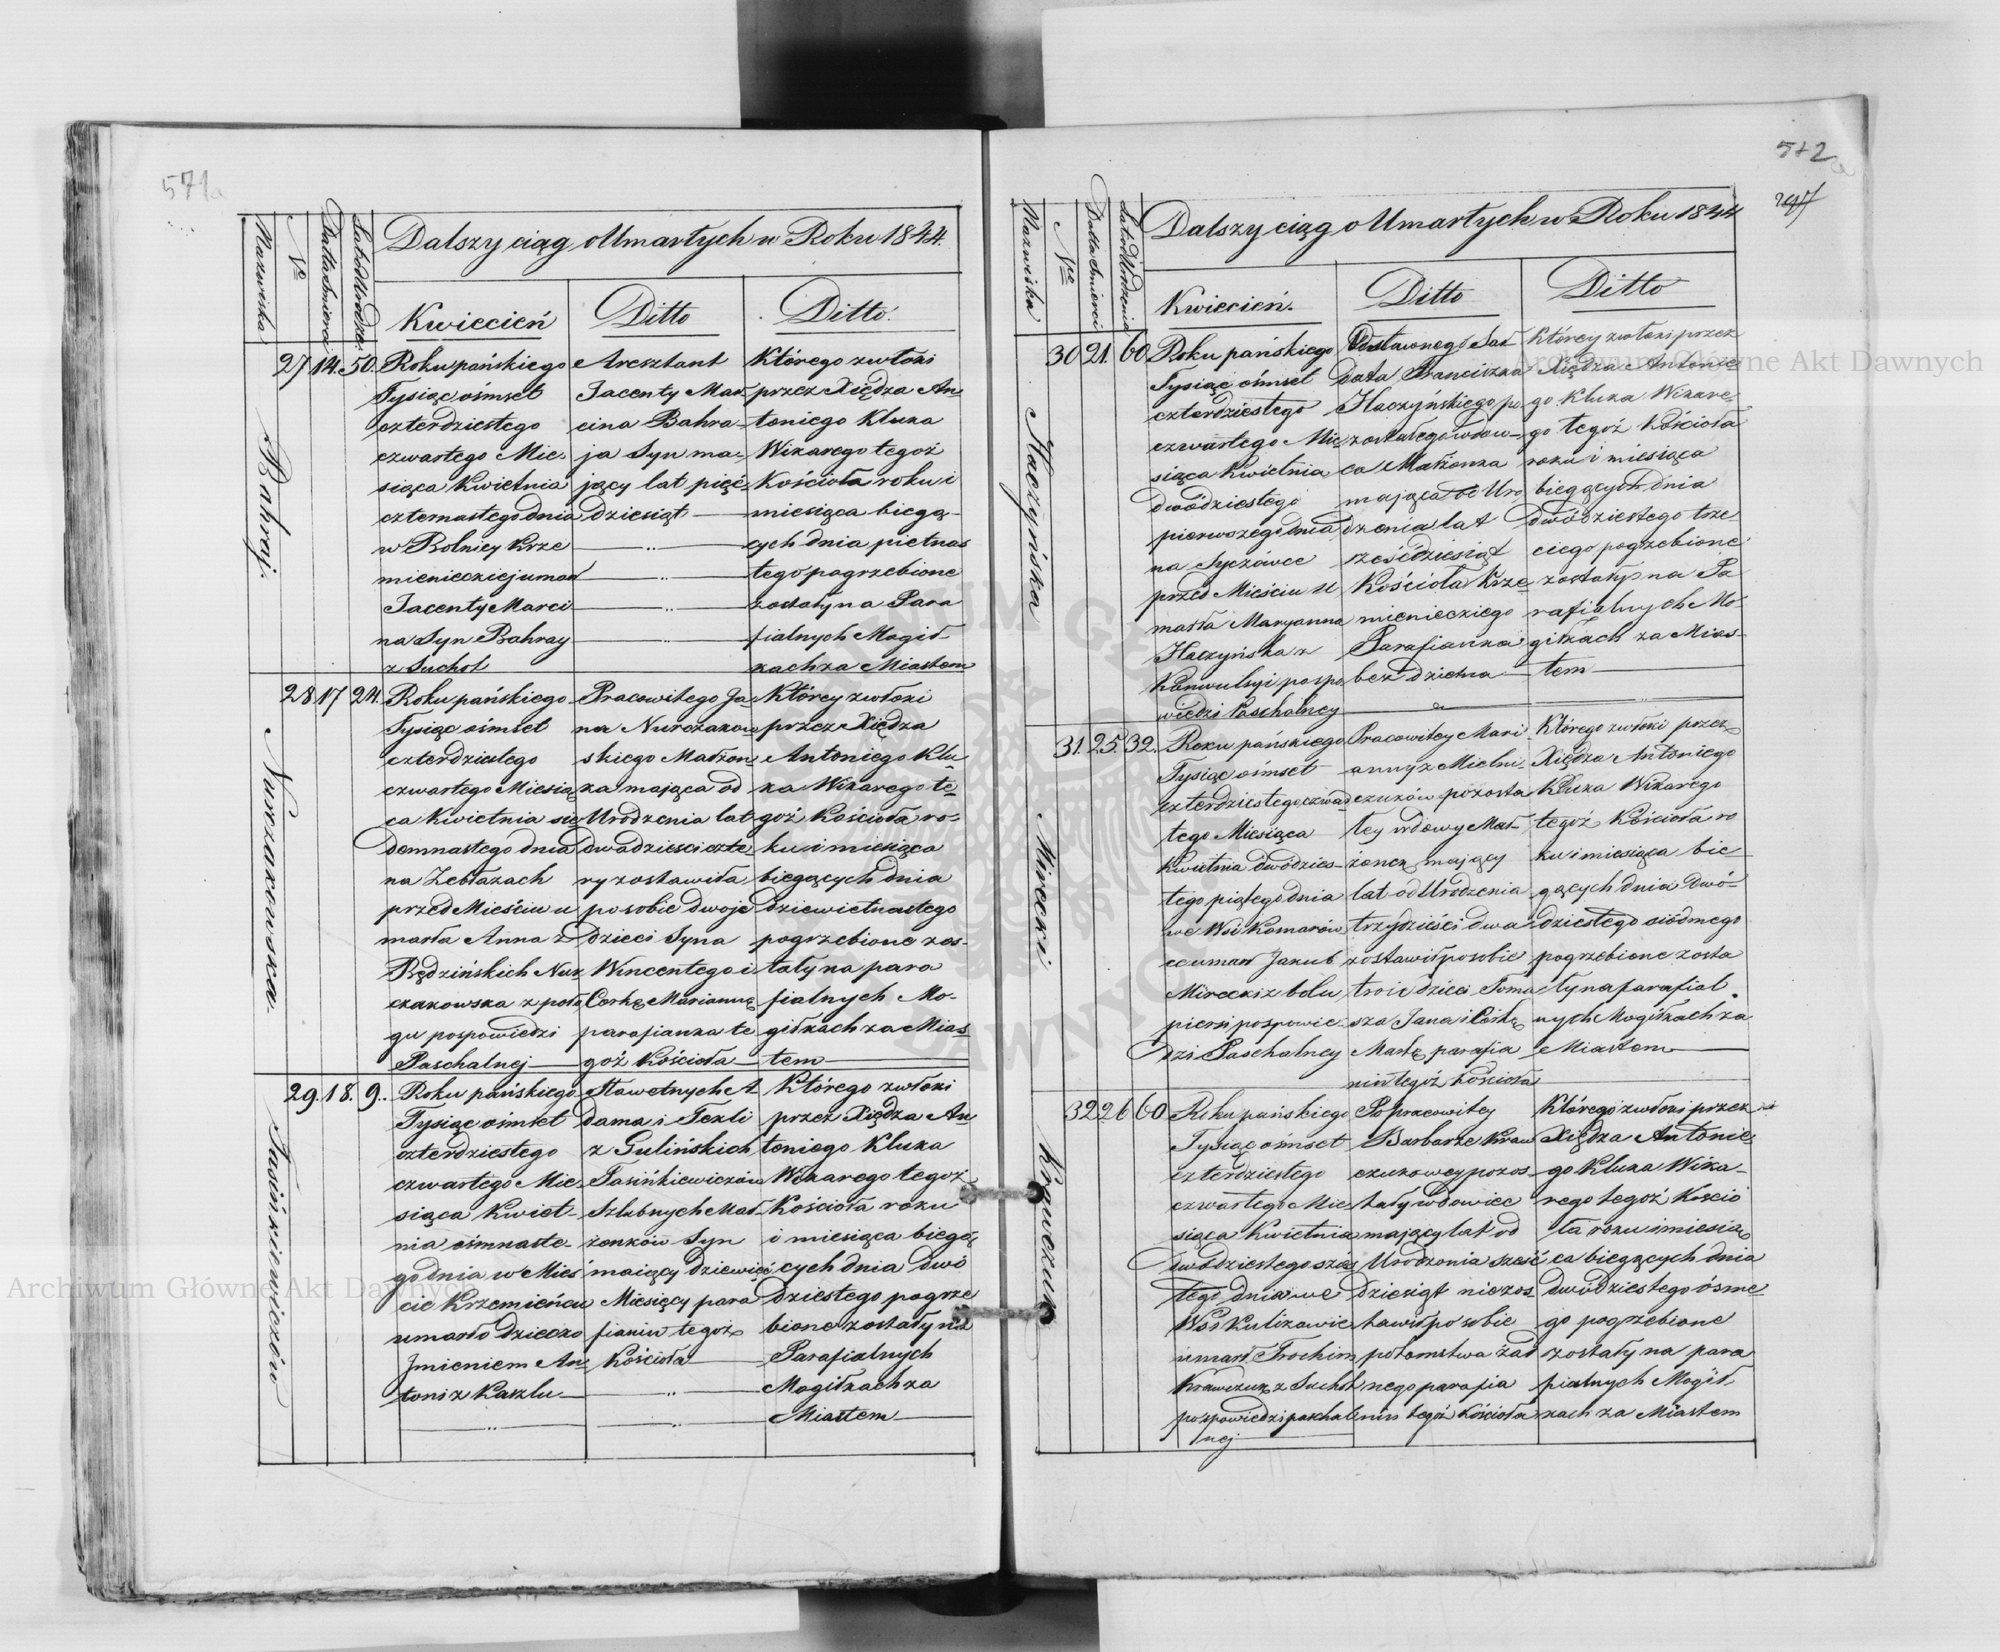 571a
Dalszy ciąg o Umarłych w Roku 1844.
Nazwiska
No
Datta Smierci
Lat od Urodze.
Kwiecień
Ditto
Ditto.
27
14.
50.
Bahraj.
Roku pańskiego
Tysiąc ośmset
czterdziestego
czwartego Mie-
siąca Kwietnia
czternastego dnia
w Bolniey Krze
mienieckiej umarł
Jacenty Marci
na Syn Bahray
z Suchot
Aresztant
Jacenty Mar-
cina Bahra-
ja Syn ma-
jący lat pięć-
dziesiąt
Którego zwłoki
przez Xiędza An-
toniego Kluka
Wikarego tegoż
Kościoła roku i
miesiąca biegą-
cych dnia piętnas
tego pogrzebione
zostały na Para
fialnych Mogił-
kach za Miastem
28
17
24.
Nurzakowska.
Roku pańskiego
Tysiąc ośmset
czterdziestego
czwartego Miesią
ca Kwietnia sie
demnastego dnia
na Zebłazach
przed Mieściu u
marła Anna z
Będzińskich Nur
czakowska z poło
gu po spowiedzi
Paschalnej
Pracowitego Ja
na Nurczakow
skiego Małżon-
ka mająca od
Urodzenia lat
dwadzieści czte
ry zostawiła
po sobie dwoje
dzieci Syna
Wincentego i
Corkę Mariannę
parafianka te
goż Kościoła
Którey zwłoki
przez Xiędza
Antoniego Klu
ka Wikarego te
goż Kościoła ro-
ku i miesiąca
biegących dnia
dziewietnastego
pogrzebione zos-
tały na para
fialnych Mo-
giłkach za Mias
tem
29.
18.
9.
Jasińkiewiczów
Roku pańskiego
Tysiąc ośmset
czterdziestego
czwartego Mie-
siąca Kwiet-
nia ośmnaste-
go dnia w Mieś
cie Krzemieńcu
umarło dziecko
Jmieniem An-
toni z Kaszlu
Sławetnych A
dama i Tekli
z Gulińskich
Jasińkiewiczów
Szlubnych Mał-
żonków Syn
maiący dziewięć
Miesięcy para
fianin tegoż
Kościoła
Którego zwłoki
przez Xiędza An
toniego Kluka
Wikarego tegoż
Kościoła roku
i miesiąca biegą
cych dnia dwó
dziestego pogrze
bione zostały na
Parafialnych
Mogiłkach za
Miastem
572
Dalszy ciąg o Umarłych w Roku 1844
Nazwiska
Nro
Datta Smierci
Lat od Urodzenia
Kwiecień.
Ditto
Ditto
30
21.
60
Haczyńska
Roku pańskiego
Tysiąc ośmset
czterdziestego
czwartego Mie
siąca Kwietnia
dwódziestego
pierwszego dnia
na Syczówce
przed Mieściu U
marła Maryanna
Haczyńska z
Konwulsyi po spo
wiedzi Paschalney
Odstawnego Sał
data Franciszka
Haczyńskiego po
zostałego wdow-
ca Małżonka
mająca od Uro
dzenia lat
sześćdziesiąt
Kościoła Krze
mienieckiego
Parafianka
bezdzietna
Którey zwłoki przez
Xiędza Antonie
go Kluka Wikare
go tegoż Kościoła
roku i miesiąca
biegących dnia
dwódziestego trze-
ciego pogrzebione
zostały na Pa
rafialnych Mo-
giłkach za Mias-
tem
31.
25
32.
Mirecki
Roku pańskiego
Tysiąc ośmset
czterdziestego czwar
tego Miesiąca
Kwietnia dwódzies-
tego piątego dnia
we Wsi Komarów
ce umarł Jakub
Mirecki z bolu
piersi po spowie-
dzi Paschalney
Pracowitey Mari
anny z Mielni-
czuków pozosta
łey wdowy Mał-
żonek mający
lat od Urodzenia
trzydzieści dwa
zostawił po sobie
troie dzieci Toma
sza Jana i Córkę
Martę parafia
nin tegoż Kościoła
Którego zwłoki przez
Xiędza Antoniego
Kluka Wikarego
tegoż Kościoła ro
ku i miesiąca bie
gących dnia Dwó-
dziestego siódmego
pogrzebione zosta
ły na parafial
nych Mogiłkach za
Miastem
32
26
60
Krawczuk
Roku pańskiego
Tysiąc ośmset
czterdziestego
czwartego Mie
siąca Kwietnia
dwódziestego szós
tego dnia we
Wsi Kulikawie
umarł Trochim
Krawczuk z Suchot
po spowiedzi paschal
nej
Po pracowitey
Barbarze Kraw
czukowey pozos-
tały wdowiec
mający lat od
Urodzenia sześć
dziesiąt niezos-
tawił po sobie
potomstwa żad
nego parafia
nin tegoż Kościoła
Którego zwłoki przez
Xiędza Antonie
go Kluka Wika-
rego tegoż Kościo
ła roku i miesią
ca biegących dnia
dwódziestego ósme
go pogrzebione
zostały na para
fialnych Mogił
kach za Miastem
Archiwum Główne Akt Dawnych
Archiwum Główne Akt Dawnych